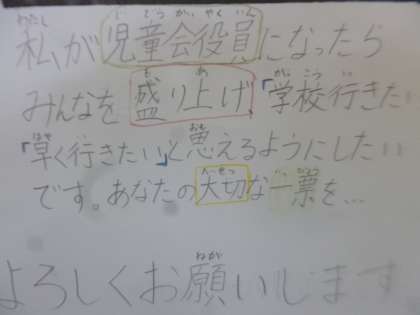 私が児童会役員になったら
みんなを盛り上げ「学校行きたい
「早く行きたい」と思えるようにしたい
です。あなたの大切な一票を…
よろしくお願いします